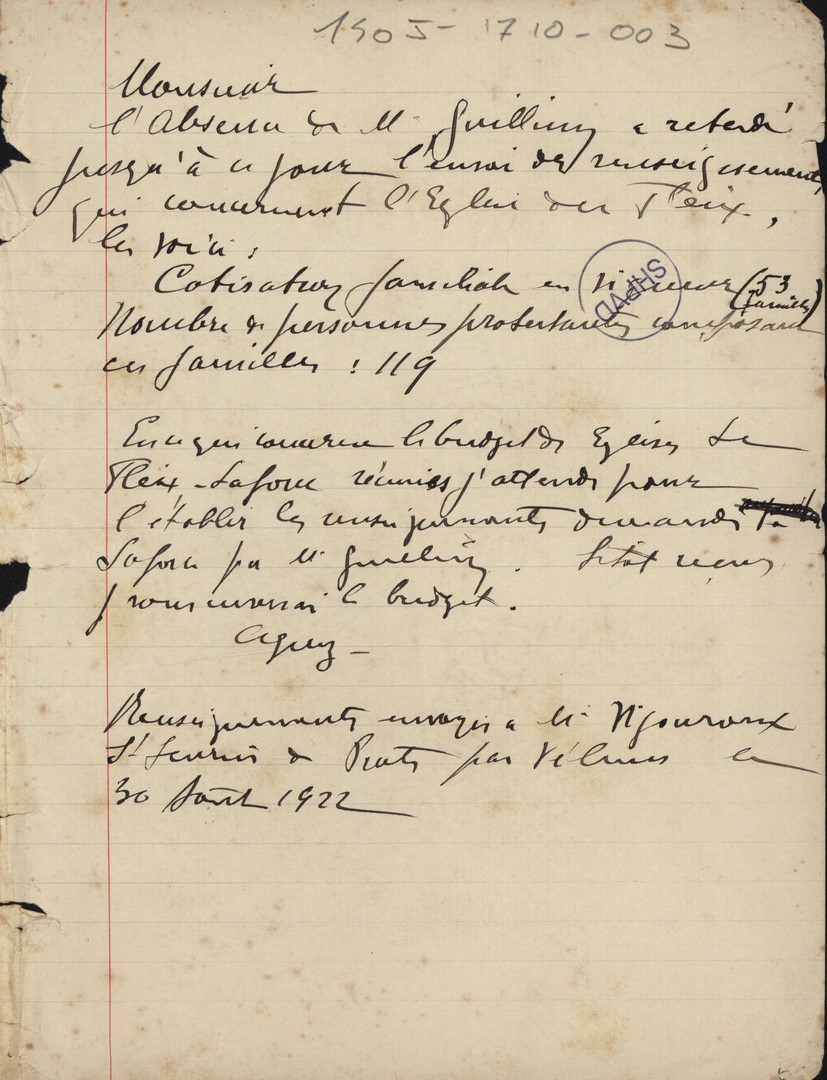 1905-1710-003
Monsieur
l'Absence de M. Guilling a retardé
jusqu'à ce jour l'envoi des renseignements
qui concernent l'Eglise du Fleix,
les voici :
Cotisations familiale en (53
familles)
SHPVD
Nombre de personnes protestantes composant
ces familles : 119
En ce qui concerne le budget des Eglises Le
Fleix-Laforce réunies j'attends pour
l'établir les renseignements demandés
Laforce par M. Sitôt reçus
je vous enverrai le budget.
Agréez -
Renseignements envoyés à Mr Vigouroux
St Seurin de Prats par Vélines le
30 Août 1922